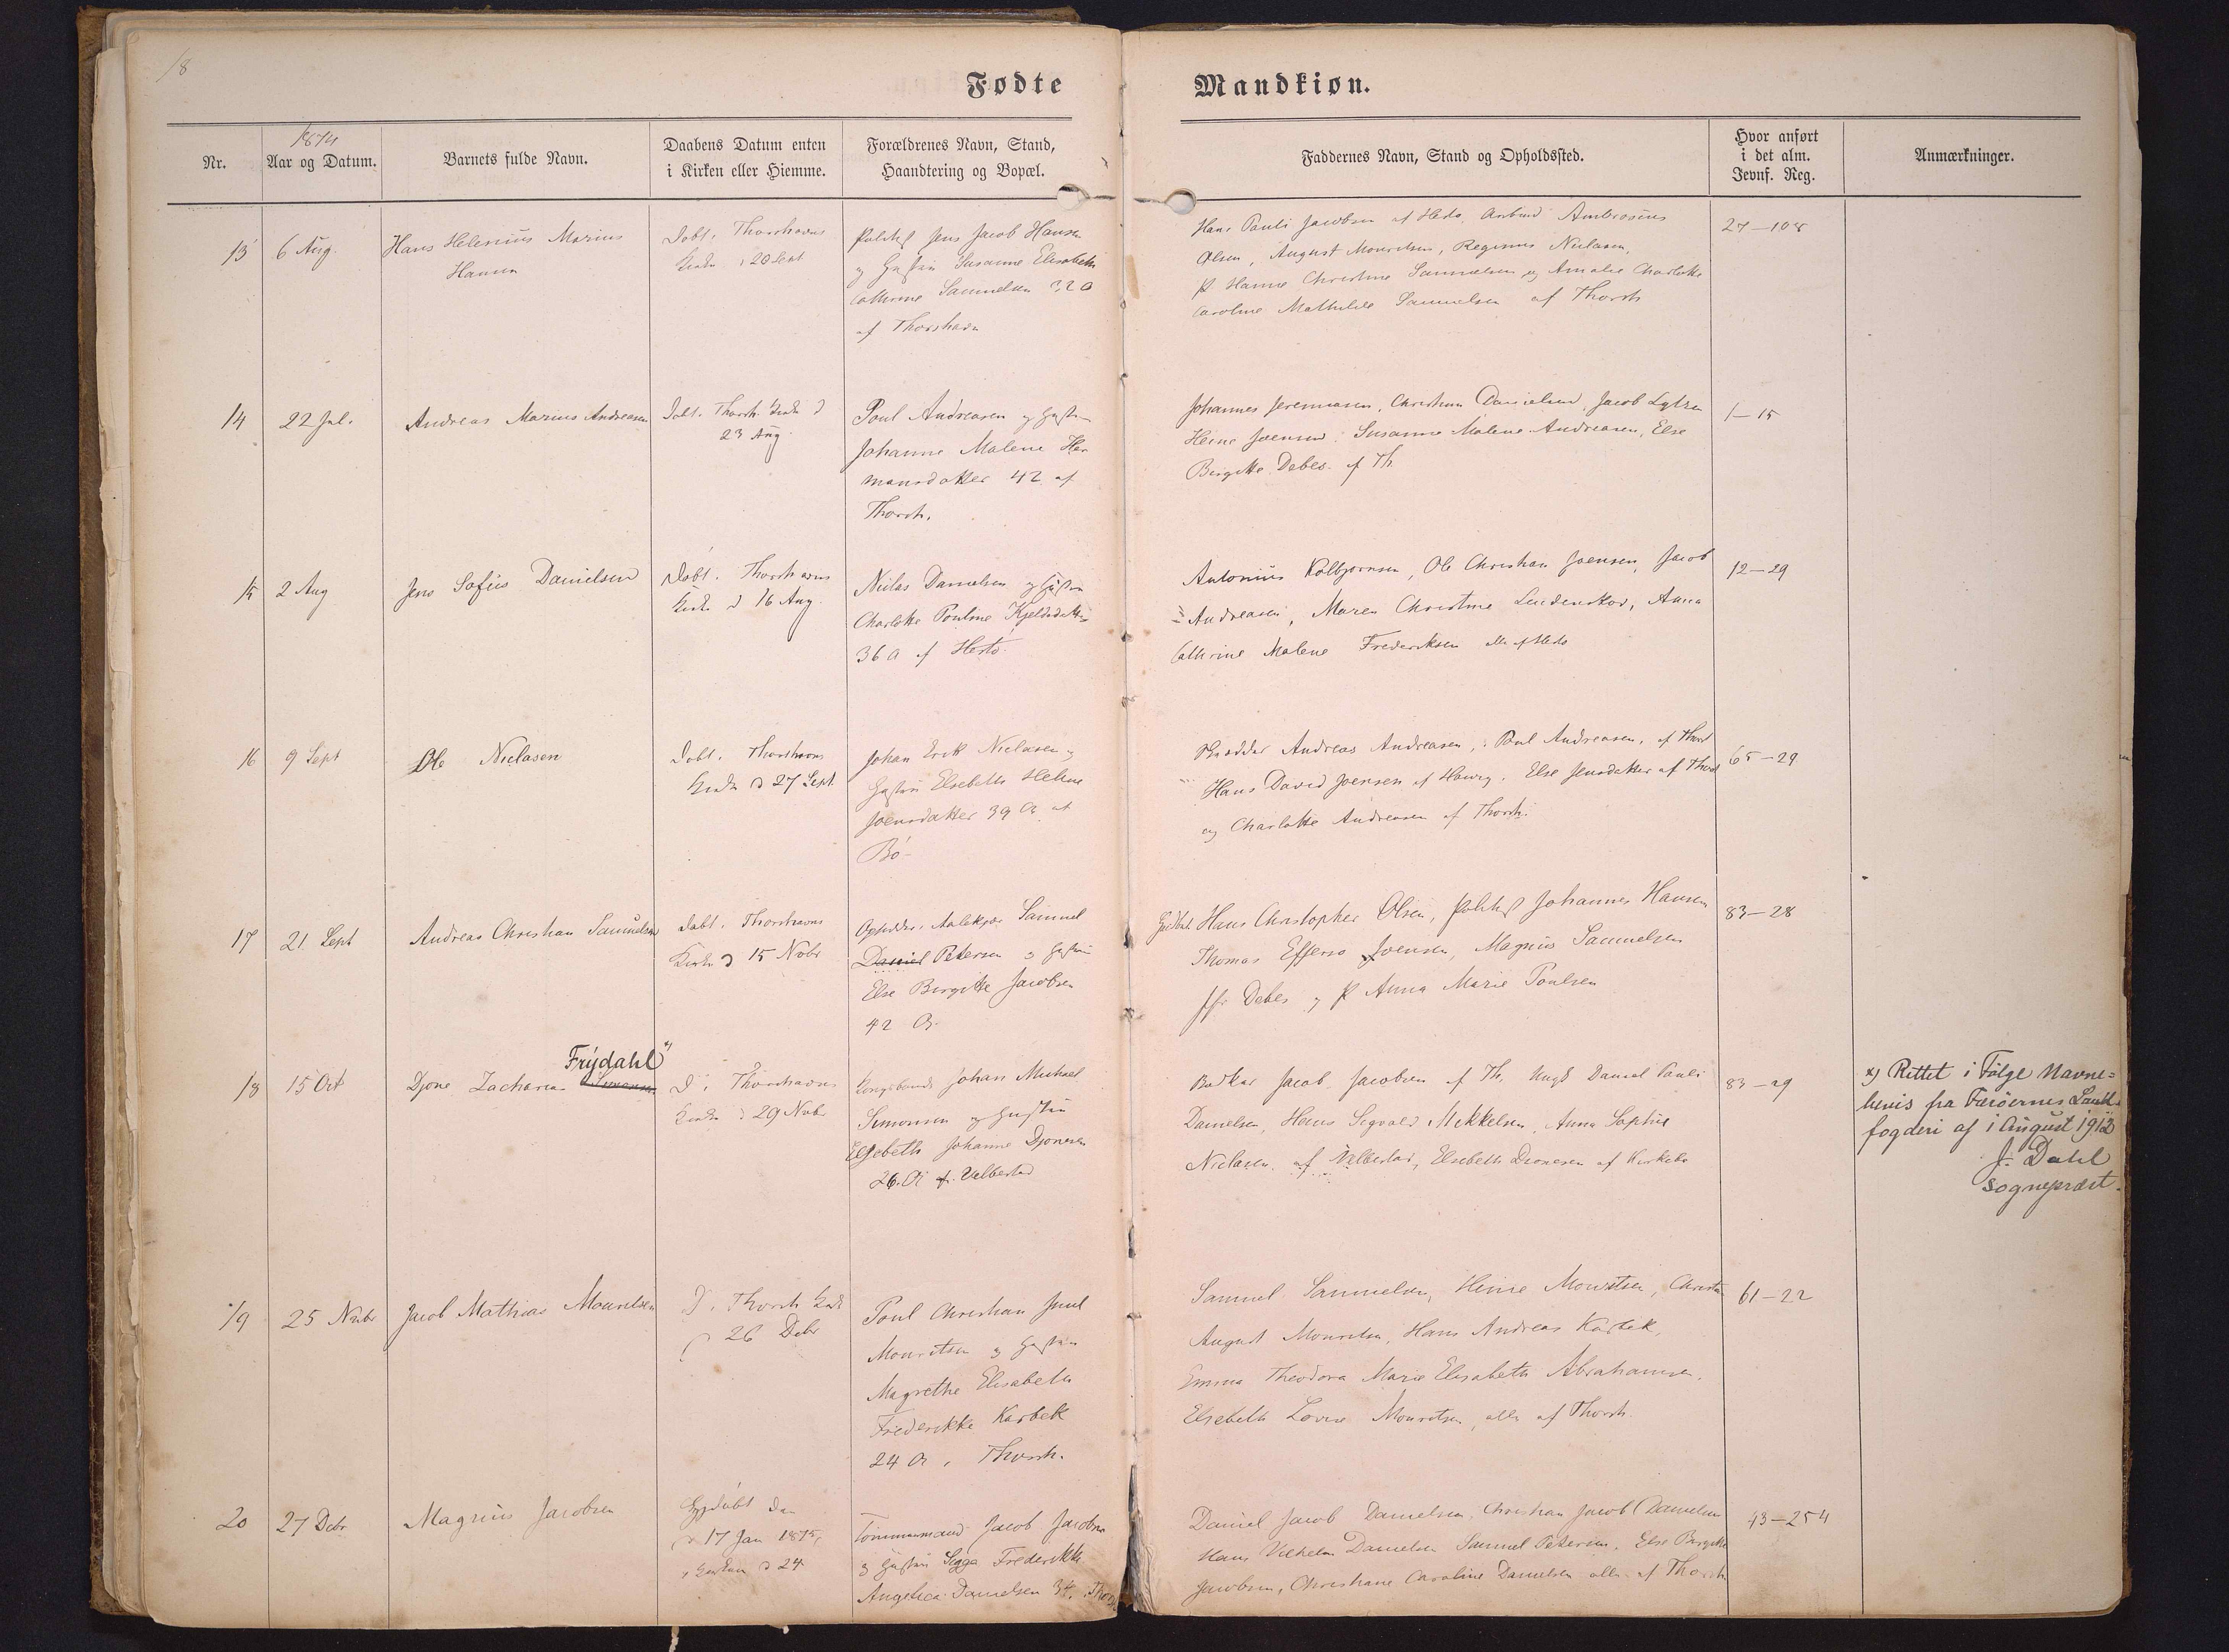 18
Fødte
Mandkiøn.
Nr.
1874
Aar og Datum.
Barnets fulde Navn.
Daabens Datum enten
i Kirken eller Hiemme.
Forældrenes Navn, Stand,
Haandtering og Bopæl.
Faddernes Navn, Stand og Opholdssted.
Hvor anført
i det alm.
Jevnf. Reg.
Anmærkninger.
13
6 Aug.
Hans Helenius Marius
Hansen
Døbt i Thorshavns
Kirke d 20 Sept
Jens Jacob Hansen
og Hustru Susanne Elisabeth
Cathrine Samuelsen 32 A
af Thorshavn
Hans Pauli Jacobsen af Ambrosius
Olsen, August Mouritsen, Regenus Nielasen,
P Hanne Christine Samuelsen og Amalie Charlotte
Caroline Mathilde Samuelsen af Thorsh
27-108
14
22 Jul.
Andreas Marius Andreasen
Døbt i Thorsh. Kirke d
23 Aug.
Poul Andreasen og Hustru
Johanne Malene Her
mansdatter 42 af
Thorsh.
Johannes Jeremiasen, Christian Danielsen, Jacob
Heine Joensen, Susanne Malene Andreasen, Else
Birgitte Debes. af Th.
1-15
15
2 Aug
Jens Sofus Danielsen
Døbt i Thorshavns
Kirke d 16 Aug.
Niclas Danielsen og Hustru
Charlotte Pouline Kjeldsdatter
36 A af Hestø.
Antonius Kolbjørnsen, Ole Christian Joensen, Jacob
Andreasen, Maren Christine Lindenskov, Anna
Cathrine Malene Frederiksen alle af Hestø
12-29
16
9 Sept
Ole Niclasen
Døbt i Thorshavns
Kirke d 27 Sept.
Johan Erik Niclasen og
Hustru Elsebeth Helene
Joensdatter 39 A af
Bø-
Andreas Andreasen, Poul Andreasen, af Thorsh
Hans David Joensen af Else Jensdatter af Thorsh
og Charlotte Andreasen af Thorsh.
65-29
17
21 Sept
Andreas Christian Samuelsen
Døbt i Thorshavns
Kirke d 15 Nobr
Samuel
Daniel Petersen og Hustru
Else Birgitte Jacobsen
42 A.
Hans Christopher Olsen, Johannes Hansen
Thomas Effersø Joensen, Magnus Samuelsen
Jfr Debes og P Anna Marie Poulsen
83-28
18
15 Oct
Frýdahl x)
Djone Zacharias Simonsen
D. i Thorshavns
Kirke d 29 Nobr
Kongsbonde Johan Michael
Simonsen og Hustru
Elsebeth Johanne Djonesen
26 A af Velbestad
Jacob Jacobsen af Th, Ungk Daniel Pauli
Danielsen, Hans Sigvald Mikkelsen, Anna Sophie
Niclasen af Velbestad, Elsebeth Dionesen af Kirkebø
83-29
x) Rettet i Følge Navne=
bevis fra Færøernes Land-
fogderi af 1 August 1912
J. Dahl
sognepræst.
19
25 Nobr
Jacob Mathias Mouritsen
D. i Thorsh Kirke
d 26 Debr
Poul Christian Juul
Mouritsen og Hustru
Magrethe Elisabeth
Frederikke Karbek
24 A, Thorsh.
Samuel Samuelsen, Heine Mouritsen, Christian
August Mouritsen, Hans Andreas Karbek,
Emma Theodora Marie Elisabeth Abrahamsen,
Elsebeth Lovise Mouritsen, alle af Thorsh.
61-22
20
27 Debr
Magnus Jacobsen
Hjdøbt den
d 17 Jan 1875,
i Kirken d 24
Tømmermand Jacob Jacobsen
og Hustru Sigga Frederikke
Angelica Danielsen 34. Thorsh
Daniel Jacob Danielsen, Christian Jacob Danielsen
Hans Vilhelm Danielsen Samuel Petersen, Else Birgitte
Jacobsen, Christiane Caroline Danielsen alle af Thorsh.
43-254